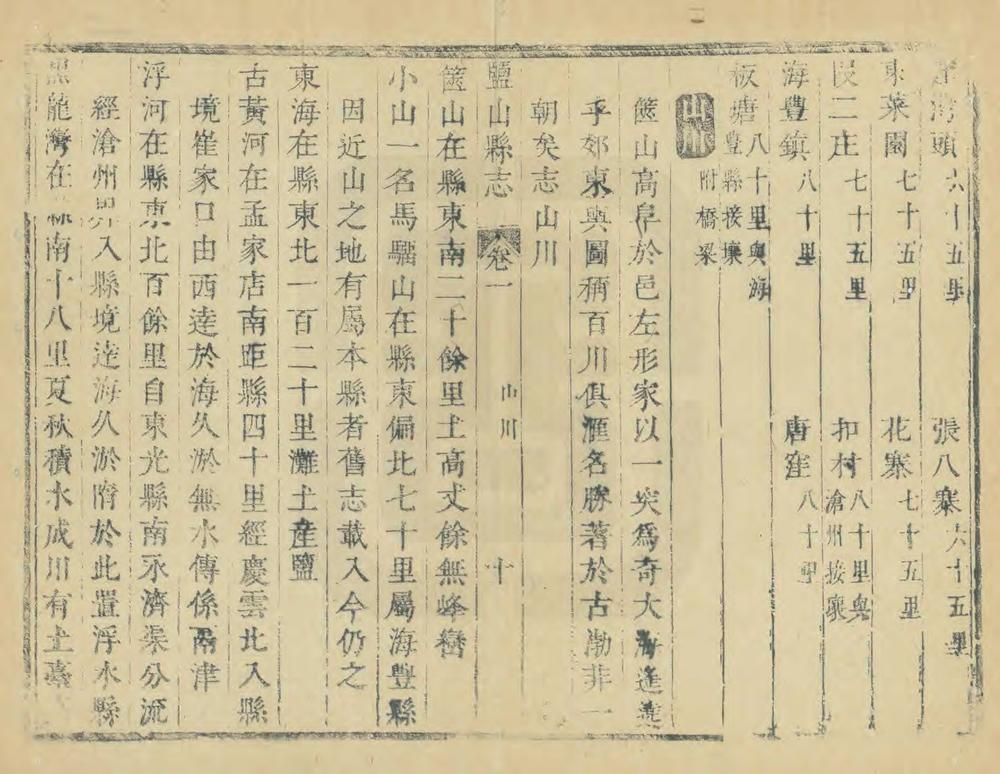 灣頭六十五里　張八寨六十五里
東菜園七十五里　花寨七十五里
民二庄七十五里　扣村八十里與滄州接壤
海豐鎮八十里　唐窪八十里
板塘八十里與海豐縣接壤
山川附橋梁
篋山高阜於邑左形家以一突為奇大海進
乎郊東輿圖稱百川俱滙名勝著於古渤非一
朝矣志山川
鹽山縣志　卷一　山川　十
篋山在縣東南二十餘里土高丈餘無峰巒
小山一名馬騮山在縣東偏北七十里屬海豐縣
因近山之地有屬本縣者舊志載入今仍之
東海在縣東北一百二十里灘土産鹽
古黃河在孟家店南距縣四十里經慶雲北入縣
境崔家口由西逹於海久淤無水傳係鬲津
浮河在縣東北百餘里自東光縣南永濟渠分流
經滄州界入縣境逹海久淤隋於此置浮水縣
黑龍灣在縣南十八里夏秋積水成川有土臺